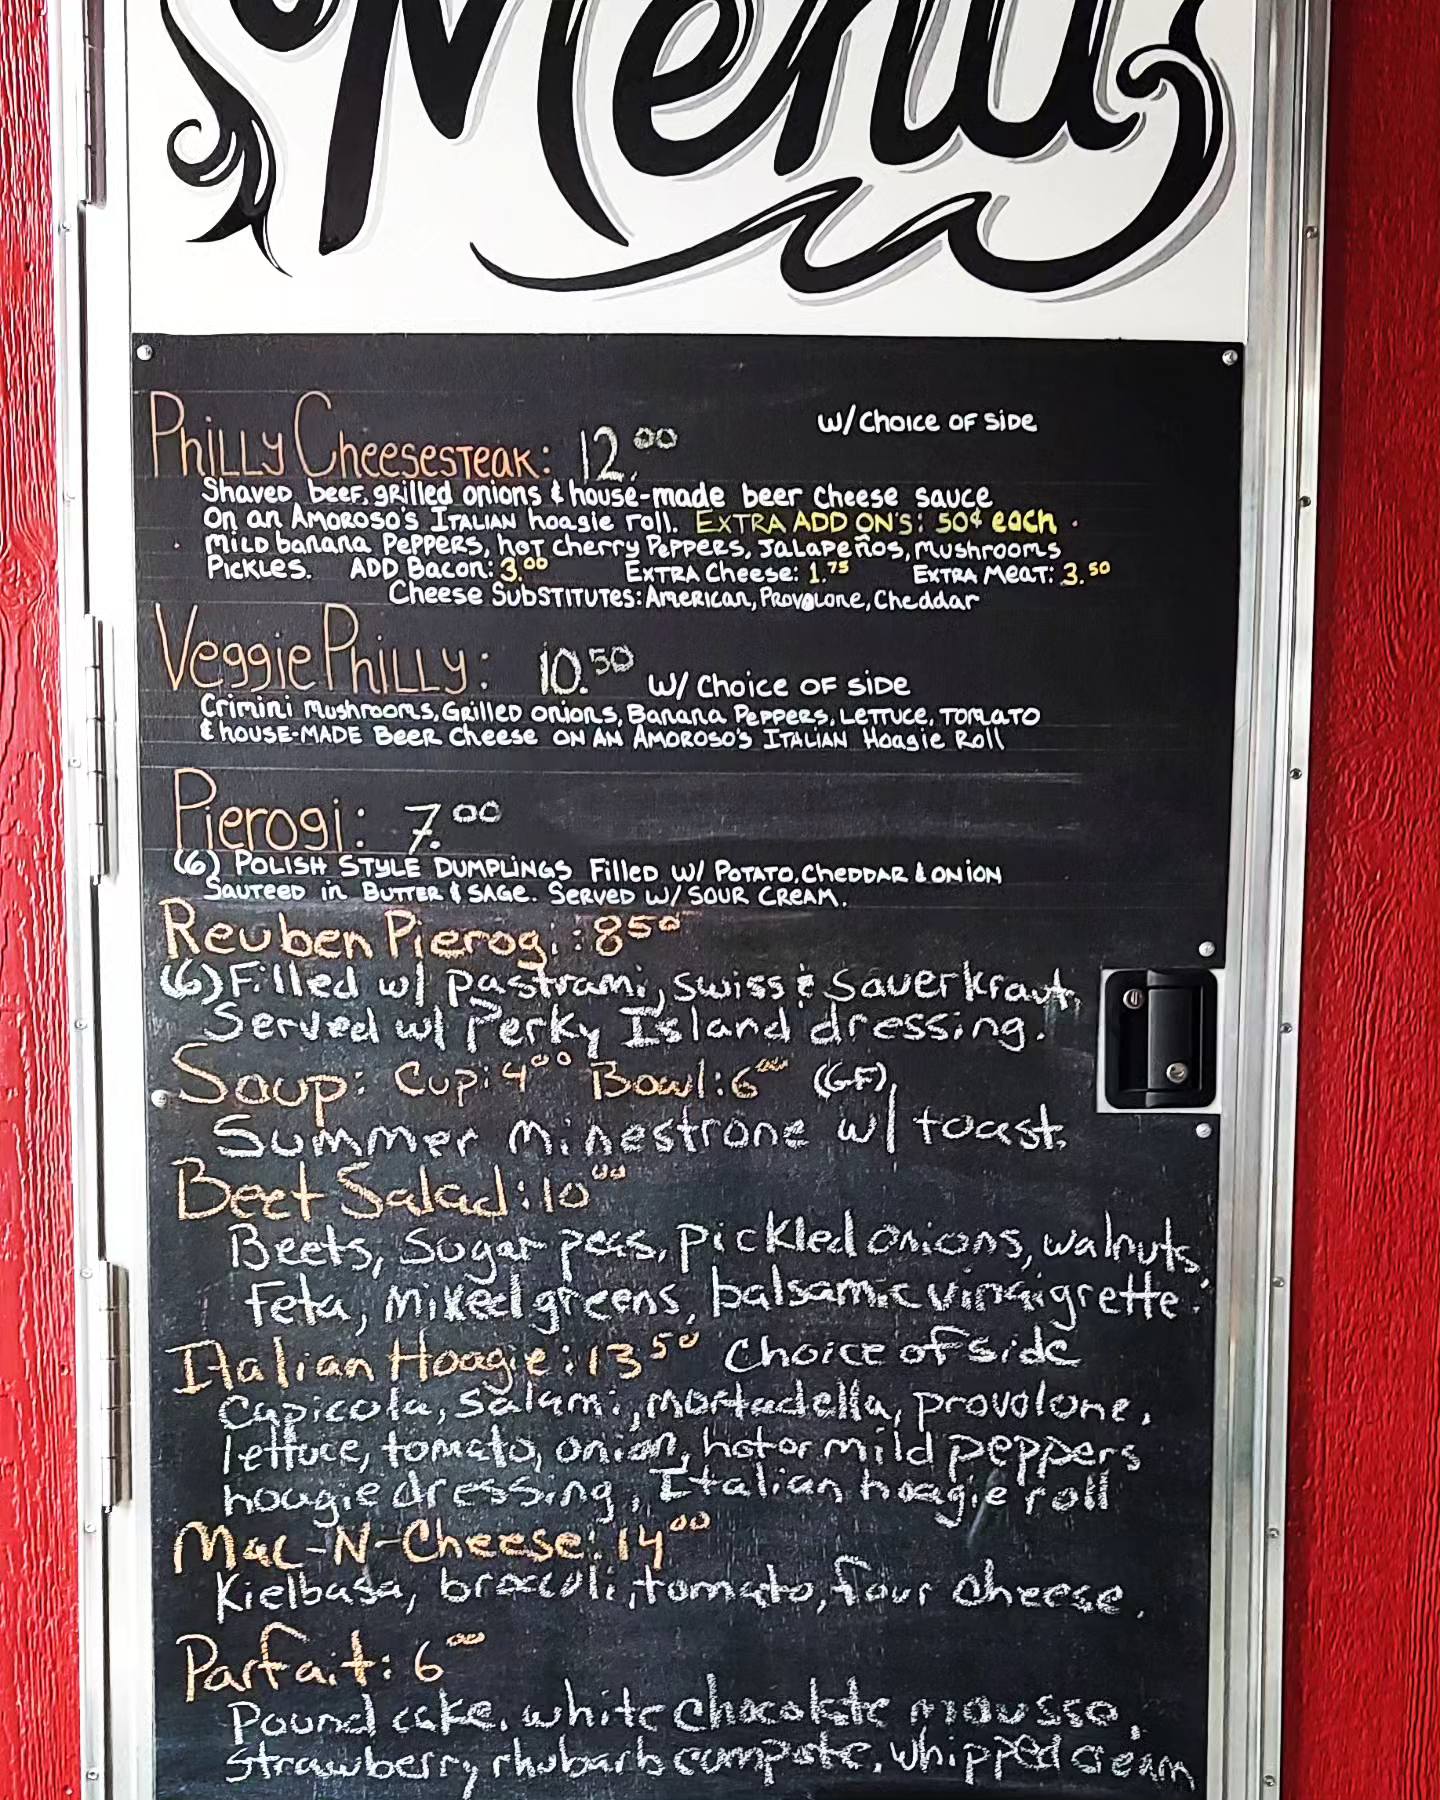 Menu
Philly Cheesesteak: 12.00 w/ choice of side
Shaved beef, grilled onions & house-made beer cheese sauce
On an Amoroso's Italian hoagie roll. Extra Add On's: 50¢ each
Mild banana peppers, hot cherry peppers, jalapeños, mushrooms
Pickles. Add Bacon: 3.00 Extra Cheese: 1.75 Extra Meat: 3.50
Cheese Substitutes: American, Provolone, Cheddar
Veggie Philly: 10.50 w/ choice of side
Crimini mushrooms, Grilled onions, Banana Peppers, Lettuce, Tomato
& house-made Beer Cheese on an Amoroso's Italian Hoagie Roll
Pierogi: 7.00
(6) Polish Style Dumplings Filled w/ Potato, Cheddar & Onion
Sauteed in Butter & Sage. Served w/ Sour Cream.
Reuben Pierogi: 8 50
(6) Filled w/ pastrami, swiss & Sauerkraut,
Served w/ Perky Island dressing.
Soup: Cup: 4 00 Bowl: 6 00 (GF)
Summer minestrone w/ toast.
Beet Salad: 10 00
Beets, Sugar peas, pickled onions, walnuts,
feta, mixed greens, balsamic vinaigrette.
Italian Hoagie: 13 50 Choice of side
Capicola, Salami, mortadella, provolone,
lettuce, tomato, onion, hot or mild peppers
hougie dressing, Italian hoagie roll
Mac-N-Cheese: 14 00
Kielbasa, broccoli, tomato, four cheese.
Parfait: 6 00
Pound cake, white chocolate mousse,
Strawberry rhubarb compote, whipped cream